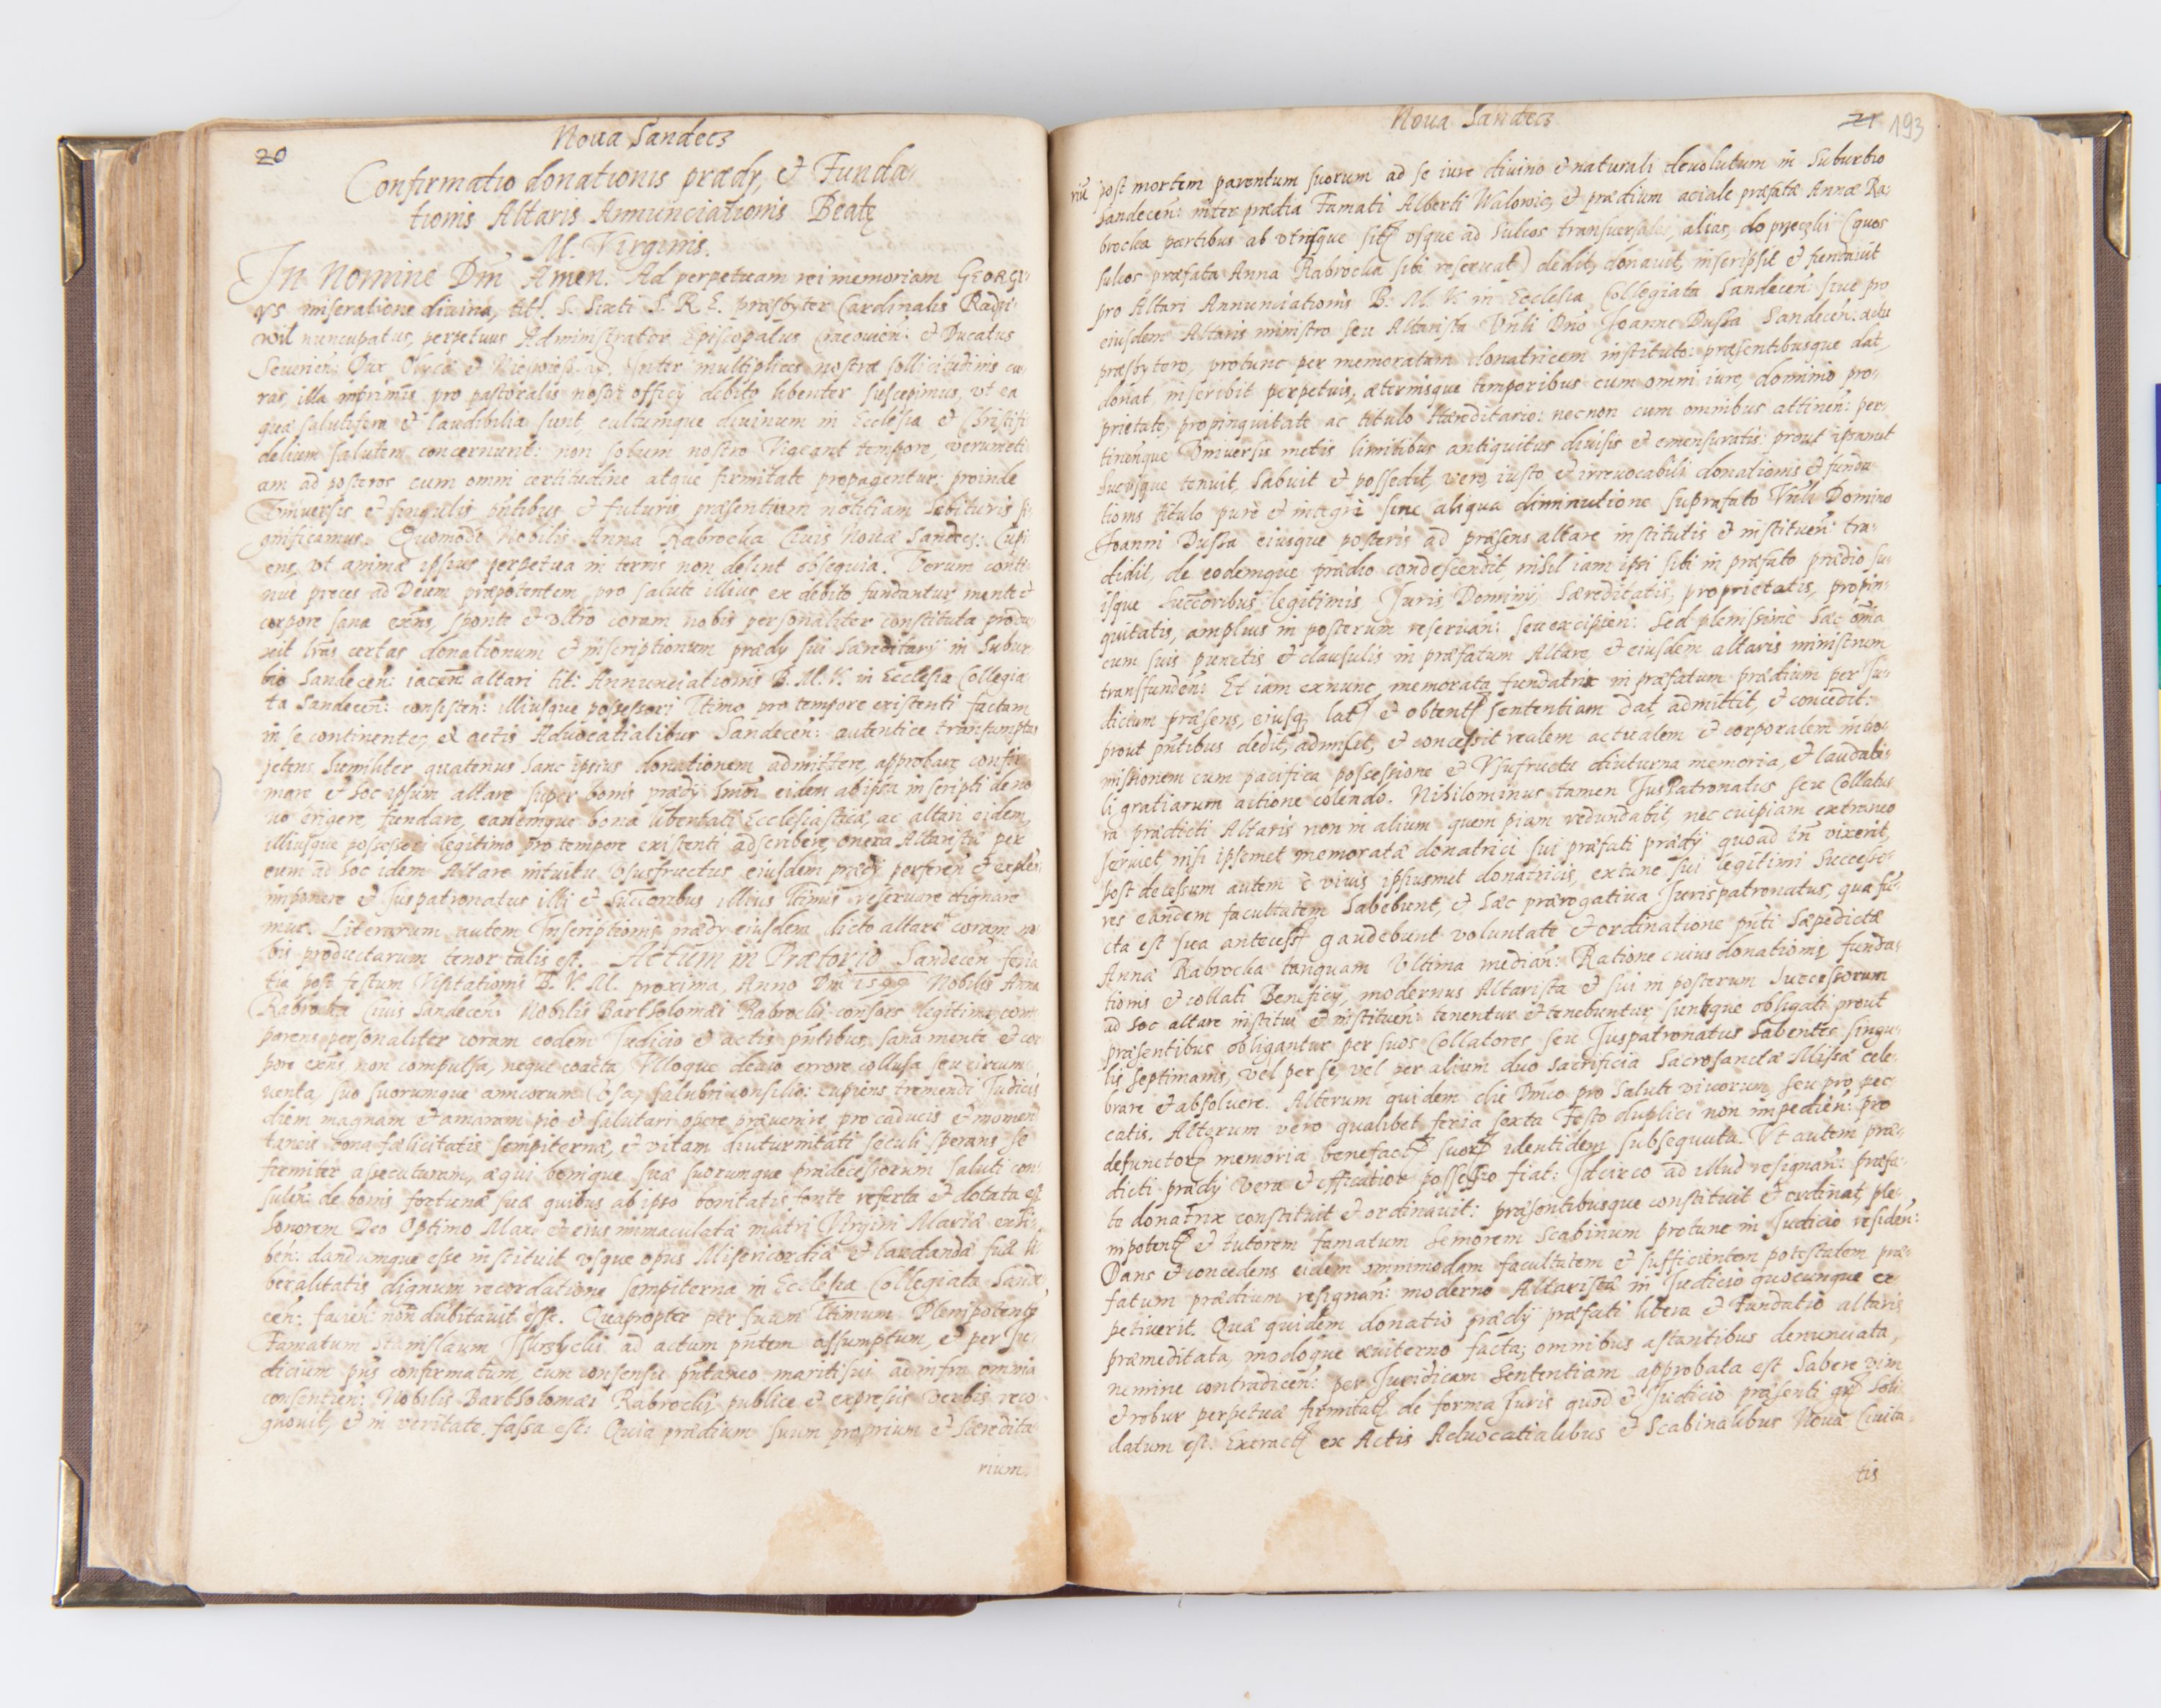 20
Noua Sandecz
Confirmatio donationis prædij, et Funda-
tionis Altaris Annunciationis Beatę
M. Virginis.
In Nomine Dni Amen. Ad perpetuam rei memoriam GEORGI-
VS miseratione diuina, tit. S. Sixti S. R. E. præsbyter Cardinalis Radzi-
wil nuncupatus, perpetuus Administrator Episcopatus Cracouien: et Ducatus
Seuerien: Dux Olycæ et Inter multiplices nostræ sollicitudinis cu-
ras, illa inprimis pro pastoralis nostri officij debito libenter suscepimus, vt ea
quæ salutifera et laudibilia sunt, cultumque diuinum in Ecclesia et Christifi
delium salutem concernunt: non solum nostro vigeant tempore, verumeti
am ad posteros cum omni certitudine atque firmitate propagentur: proinde
Vniuersis et singulis pntibus et futuris, præsentium notitiam habituris si-
gnificamus. Quomodo Nobilis Anna Rabrocka Ciuis Nouæ Sandecz: Cupi
ens, vt animæ ipsius perpetua in terris non desint obsequia. Verum conti-
nuè preces ad Deum præpotentem, pro salute illius ex debito fundantur mente et
corpore sana exns, sponte et vltro coram nobis personaliter constituta produ-
xit lras certas donationum et inscriptionum prædij sui hæreditarij in Subur
bio Sandecen: iacen altari tit: Annunciationis B. M. V. in Ecclesia Collegia
ta Sandecen: consisten: illiusque possessori ltimo pro tempore existenti factam
in se continentes, ex actis Aduocatialibus Sandecen: autentice transumptas
petens humiliter quatenus hanc ipsius donationem admittere, approbare confir
mare et hoc ipsum altare super bonis prædij eidem ab ipsa inscripti de no
uo erigere, fundare, eademque bona libertati Ecclesiasticæ, ac altari eidem,
illiusque possessori legitimo pro tempore existenti adscribere, onera Altaristæ per
eum ad hoc idem Altare intuitu vsusfructus eiusdem prædij perferen et explen
imponere et Juspatronatus illi et Succoribus illius ltimis reseruare dignare
mur. Literarum autem Inscriptionis prædij eiusdem dicto altari coram no
bis productarum tenor talis est. Actum in Prætorio Sandecen feria
tia post festum Visitationis B. V. M. proxima, Anno Dni 1599 Nobilis Anna
Rabrocka Ciuis Sandecen: Nobilis Bartholomæi Rabrocki consors legitima, com
parens personaliter coram eodem Judicio et actis pntibus, sana mente et cor
pore exns, non compulsa, neque coacta, Vlloque deuio errore collusa seu circum
uenta, suo suorumque amicorum vsa, salubri consilio: cupiens tremendi Judicij
diem magnam et amaram pio et salutari opere præuenire, pro caducis et momen
taneis bona fælicitatis sempiternæ, et vitam diuturnitati seculi sperans se
firmiter assecuturam, æqui bonique suæ suorumque prædecessorum saluti con
sulen: de bonis fortunæ suæ quibus ab ipso bonitatis fonte referta et dotata est
honorem Deo Optimo Max. et eius immaculatæ matri Virgini Mariæ exhi-
ben: dandumque esse instituit vsque opus Misericordiæ et laudandæ suæ li
beralitatis dignum recordatione sempiterna in Ecclesia Collegiata Sande
cen: facien: non dubitauit esse. Quapropter per suum ltimum Plenipotente
Famatum Stanislaum ad actum pntem assumptum, et per Ju-
dicium pns confirmatum, cum consensu pntaneo mariti sui ad infra omnia
consentien: Nobilis Bartholomæi Rabrocki, publice et expressis verbis reco
gnouit, et in veritate fassa est: Quia prædium suum proprium et hæredita-
rium
Noua Sandecz
21 193
riu post mortem parentum suorum ad se iure diuino et naturali deuolutum in Suburbio
Sandecen: inter prædia Famati Alberti Walowic, et prædium aciale præfatæ Annæ Ra-
brocka partibus ab vtrisque sit vsque ad Sulcos transuersales, alias, do przeczki (quos
sulcos præfata Anna Rabrocka sibi reseruat) dedit, donauit, inscripsit et fundauit
pro Altari Annunciationis B. M. V. in Ecclesia Collegiata Sandecen siue pro
eiusdem Altaris ministro seu Altarista Vnli Dno Joanne Duska Sandecen: actu
præsbytero, protunc per memoratam donatricem instituto: præsentibusque dat,
donat, inscribit perpetuis, æternisque temporibus cum omni iure, dominio pro-
prietate, propinquitate ac titulo Hæreditario: necnon cum omnibus attinen: per-
tinenque Vniuersis metis limitibus antiquitus diuisis et emensuratis: prout ipsamet
hucusque tenuit, habuit et possedit, vero, iusto, et irreuocabili donationis et funda
tionis titulo purè et integrè sine aliqua diminutione suprafato Vnli Domino
Joanni Duska eiusque posteris ad præsens altare institutis et instituen tra-
didit, de eodemque prædio condescendit, nihil iam ipsi sibi in præfato prædio su-
isque Succoribus legitimis, Juris, Dominij, Hæreditatis, proprietatis, propin-
quitatis, amplius in posterum reseruan: seu excipien: Sed plenissimè hæc oma
cum suis punctis et clausulis in præfatum Altare, et eiusdem altaris ministrum
transfunden: Et iam exnunc memorata fundatrix in præfatum prædium per Ju-
dicium præsens, eiusq lat et obtent sententiam dat, admittit, et concedit:
prout pntibus dedit, admisit, et concessit realem actualem et corporalem intro-
missionem cum pacifica possessione et Vsufructu diuturna memoria, et laudabi-
li gratiarum actione colendo. Nihilominus tamen JusPatronatus seu Collatu-
ra prædicti Altaris non in alium quempiam redundabit, nec cuipiam extraneo
seruiet nisi ipsemet memoratæ donatrici sui præfati prædij quoad in vixerit,
post decessum autem è viuis ipsiusmet donatricis, extunc sui legitimi Successo-
res eandem facultatem habebunt, et hæc prærogatiua Jurispatronatus, qua fu-
cta est sua antecess gaudebunt voluntate et ordinatione pnti Sæpedictæ
Annæ Rabrocka tanquam Vltima median: Ratione cuius donationis funda-
tionis et collati Beneficij, modernus Altarista et sui in posterum Successorum
ad hoc altare institui et instituen: tenentur et tenebuntur, suntque obligati prout
præsentibus obligantur per suos Collatores seu Juspatronatus habentes singu-
lis septimanis, vel per se, vel per alium duo Sacrificia Sacrosanctæ Missæ cele-
brare et absoluere. Alterum quidem die Dnico pro Salute viuorum, seu pro pec-
catis. Alterum vero qualibet feria sexta Festo duplici non impedien: pro
defunctor memoria benefact suor identidem subsequuta. Vt autem præ-
dicti prædij vera et efficatior possessio fiat: Idcirco ad illud resignan: præfa-
ta donatrix constituit et ordinauit: præsentibusque constituit et ordinat, ple-
nipotent et tutorem famatum Semorem Scabinum protunc in Judicio residen:
Dans et concedens eidem omnimodam facultatem et sufficientem potestatem præ-
fatum prædium resignan: moderno Altaristæ in Judicio quocunque ex
petiuerit. Quæ quidem donatio prædij præfati libera et Fundatio altaris
præmeditata, modoque æuiterno facta; omnibus astantibus denunciata,
nemine contradicen: per Juridicam Sententiam approbata est habere vim
et robur perpetuæ firmitat de forma Juris quod et Judicio præsenti soli
datum est. Extract ex Actis Aduocatialibus et Scabinalibus Nouæ Ciuita-
tis